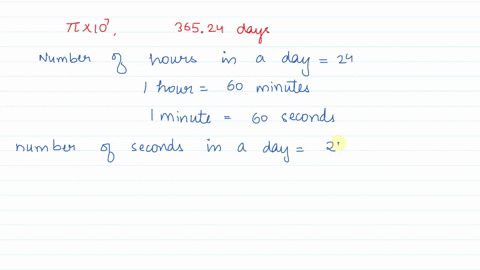 π×10⁷, 365.24 days
Number of hours in a day = 24
1 hour = 60 minutes
1 minute = 60 seconds
number of seconds in a day =